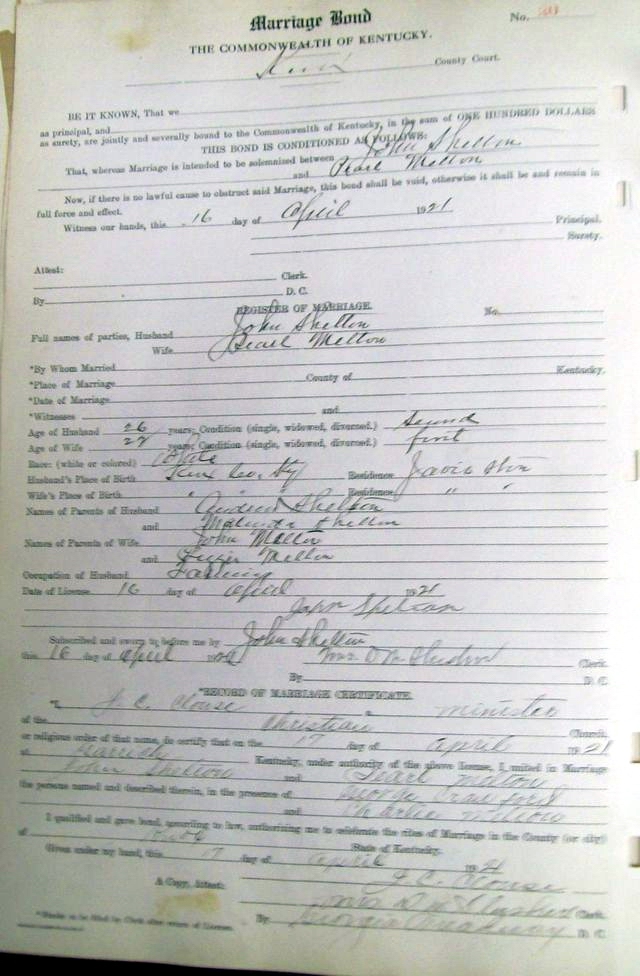 Marriage Bond
No.
THE COMMONWEALTH OF KENTUCKY.
County Court.
BE IT KNOWN, That we
as principal, and
as surety, are jointly and severally bound to the Commonwealth of Kentucky, in the sum of ONE HUNDRED DOLLARS
THIS BOND IS CONDITIONED AS FOLLOWS:
That, whereas Marriage is intended to be solemnized between John Shelton
and Pearl Melton
Now, if there is no lawful cause to obstruct said Marriage, this bond shall be void, otherwise it shall be and remain in
full force and effect.
Witness our hands, this 16 day of April 1921
Principal.
Surety.
Attest:
Clerk.
By D. C.
REGISTER OF MARRIAGE. No.
Full names of parties, Husband John Shelton
Wife Pearl Melton
*By Whom Married
*Place of Marriage County of Kentucky.
*Date of Marriage
*Witnesses and
Age of Husband 26 years; Condition (single, widowed, divorced.) Second
Age of Wife 22 years; Condition (single, widowed, divorced.) first
Race: (white or colored)
Husband's Place of Birth Residence
Wife's Place of Birth " " Residence " "
Names of Parents of Husband Shelton
and Malinda Shelton
Names of Parents of Wife John Melton
and Melton
Occupation of Husband Farming
Date of License 16 day of April 1921
John Shelton
Subscribed and sworn to before me by John Shelton
this 16 day of April 192
Clerk.
By D. C.
*RECORD OF MARRIAGE CERTIFICATE.
*I, J. C. Clouse a minister
of the Christian Church,
or religious order of that name, do certify that on the 17 day of April 1921
at Kentucky, under authority of the above License, I united in Marriage
John Shelton and Pearl Melton
the persons named and described therein, in the presence of George Crawford
and Charlie Melton
I qualified and gave bond, according to law, authorizing me to celebrate the rites of Marriage in the County (or city)
of State of Kentucky.
Given under my hand, this 17 day of April 1921
J. C. Clouse
A Copy, Attest:
Clerk.
By Georgia D. C.
*Blanks to be filled by Clerk after return of License.